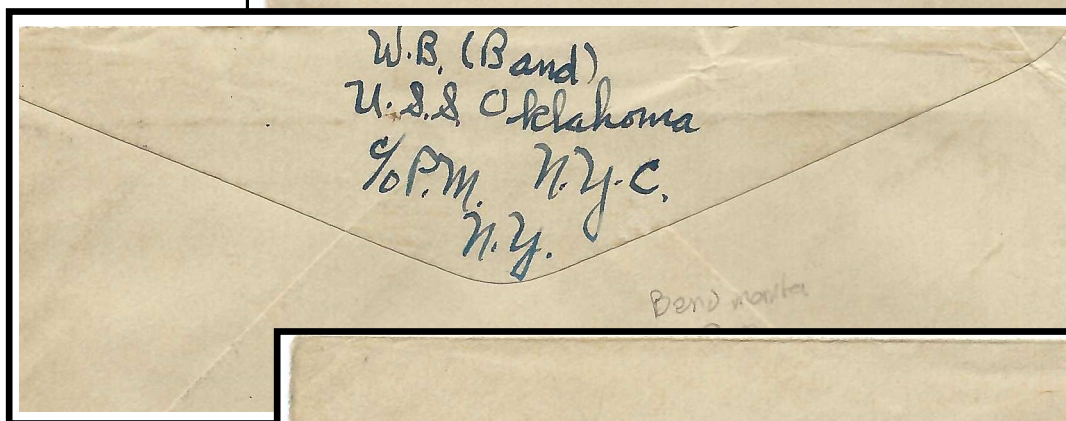 W.B. (Band)
U.S.S. Oklahoma
c/o P.M. N.Y.C.
N.Y.
Band